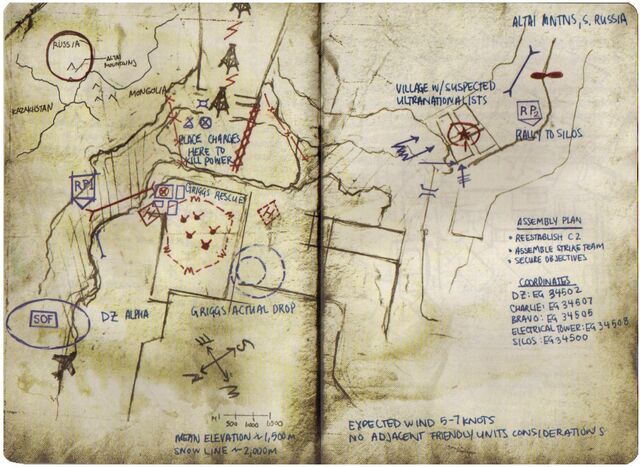 RUSSIA
ALTAI
MOUNTAINS
KAZAKHSTAN
MONGOLIA
PLACE CHARGES
HERE TO
KILL POWER
RP1
GRIGGS RESCUE
SOF
DZ ALPHA
GRIGGS ACTUAL DROP
N
S
M
500
1000
MEAN ELEVATION ~ 1,500m
SNOW LINE ~ 2,000m
ALTAI MNTNS, S. RUSSIA
VILLAGE W/ SUSPECTED
ULTRANATIONALISTS
RP2
RALLY TO SILOS
ASSEMBLY PLAN
• REESTABLISH C2
• ASSEMBLE STRIKE TEAM
• SECURE OBJECTIVES
COORDINATES
DZ: EG 34502
CHARLIE: EG 34507
BRAVO: EG 34505
ELECTRICAL TOWER: EG 34508
SILOS: EG 34500
EXPECTED WIND 5-7 KNOTS
NO ADJACENT FRIENDLY UNITS CONSIDERATIONS